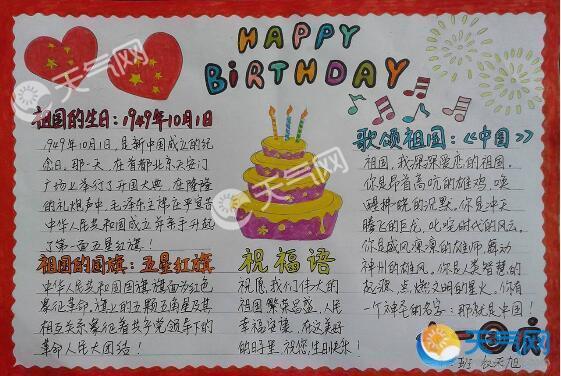 HAPPY
BiRTHDAY
祖国的生日：1949年10月1日
1949年10月1日，是新中国成立的纪
念日。那一天，在首都北京天安门
广场上举行了开国大典，在隆隆
的礼炮声中，毛泽东主席庄严宣告
中华人民共和国成立并亲手升起
了第一面五星红旗！
祖国的国旗：五星红旗
中华人民共和国国旗旗面为红色
象征革命，旗上的五颗五角星及其
相互关系象征着共产党领导下的
革命人民大团结！
祝福语
祝愿我们伟大的
祖国繁荣昌盛，人民
幸福安康，在这美好
的日子里，祝您，生日快乐！
歌颂祖国：《中国》
祖国，我深深爱恋的祖国。
你是昂首高吭的雄鸡，唤
醒拂晓的沉默，你是冲天
腾飞的巨龙，叱咤时代的风云，
你是威风凛凛的雄师，舞动
神州的雄风，你是人类智慧的
起源，点燃文明的星火，你有
一个神圣的名字，那就是中国！
班
天气网
天气网
天气网
天气网